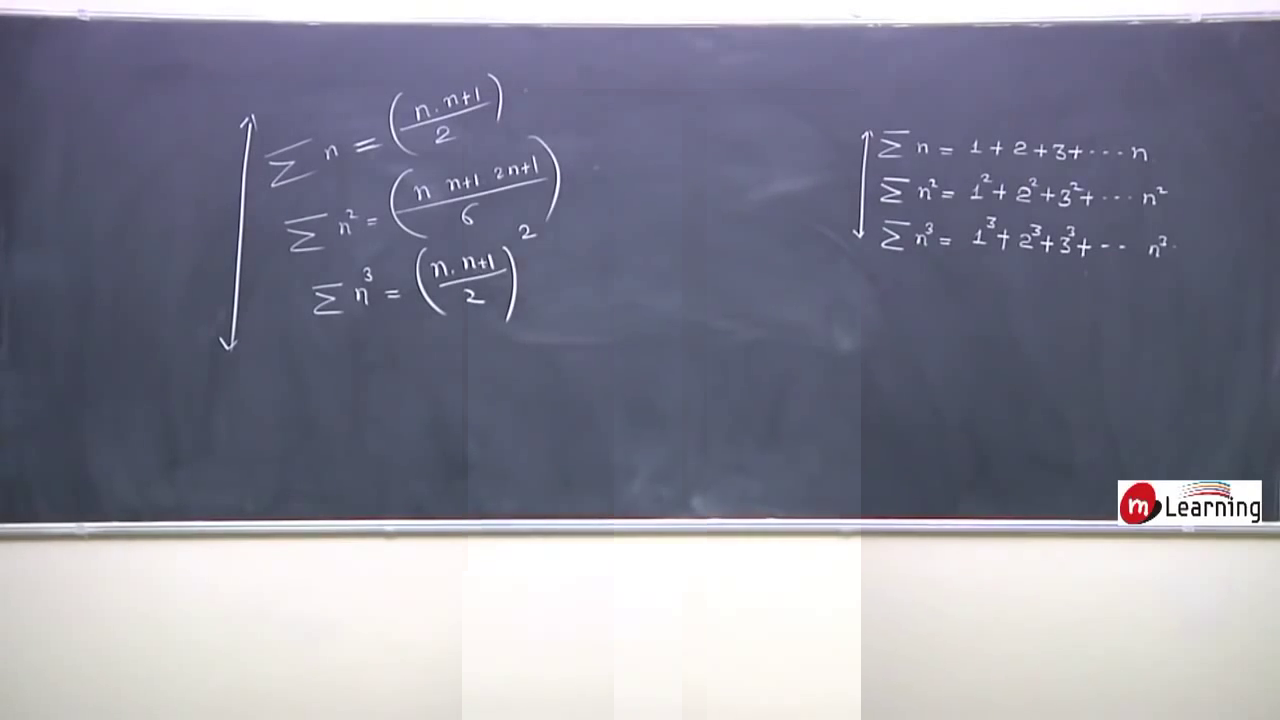 ∑ n = (n. n+1 / 2)
∑ n² = (n n+1 2n+1 / 6)
∑ n³ = (n. n+1 / 2)²
∑ n = 1 + 2 + 3 + ··· n
∑ n² = 1² + 2² + 3² + ··· n²
∑ n³ = 1³ + 2³ + 3³ + ·· n³
m Learning